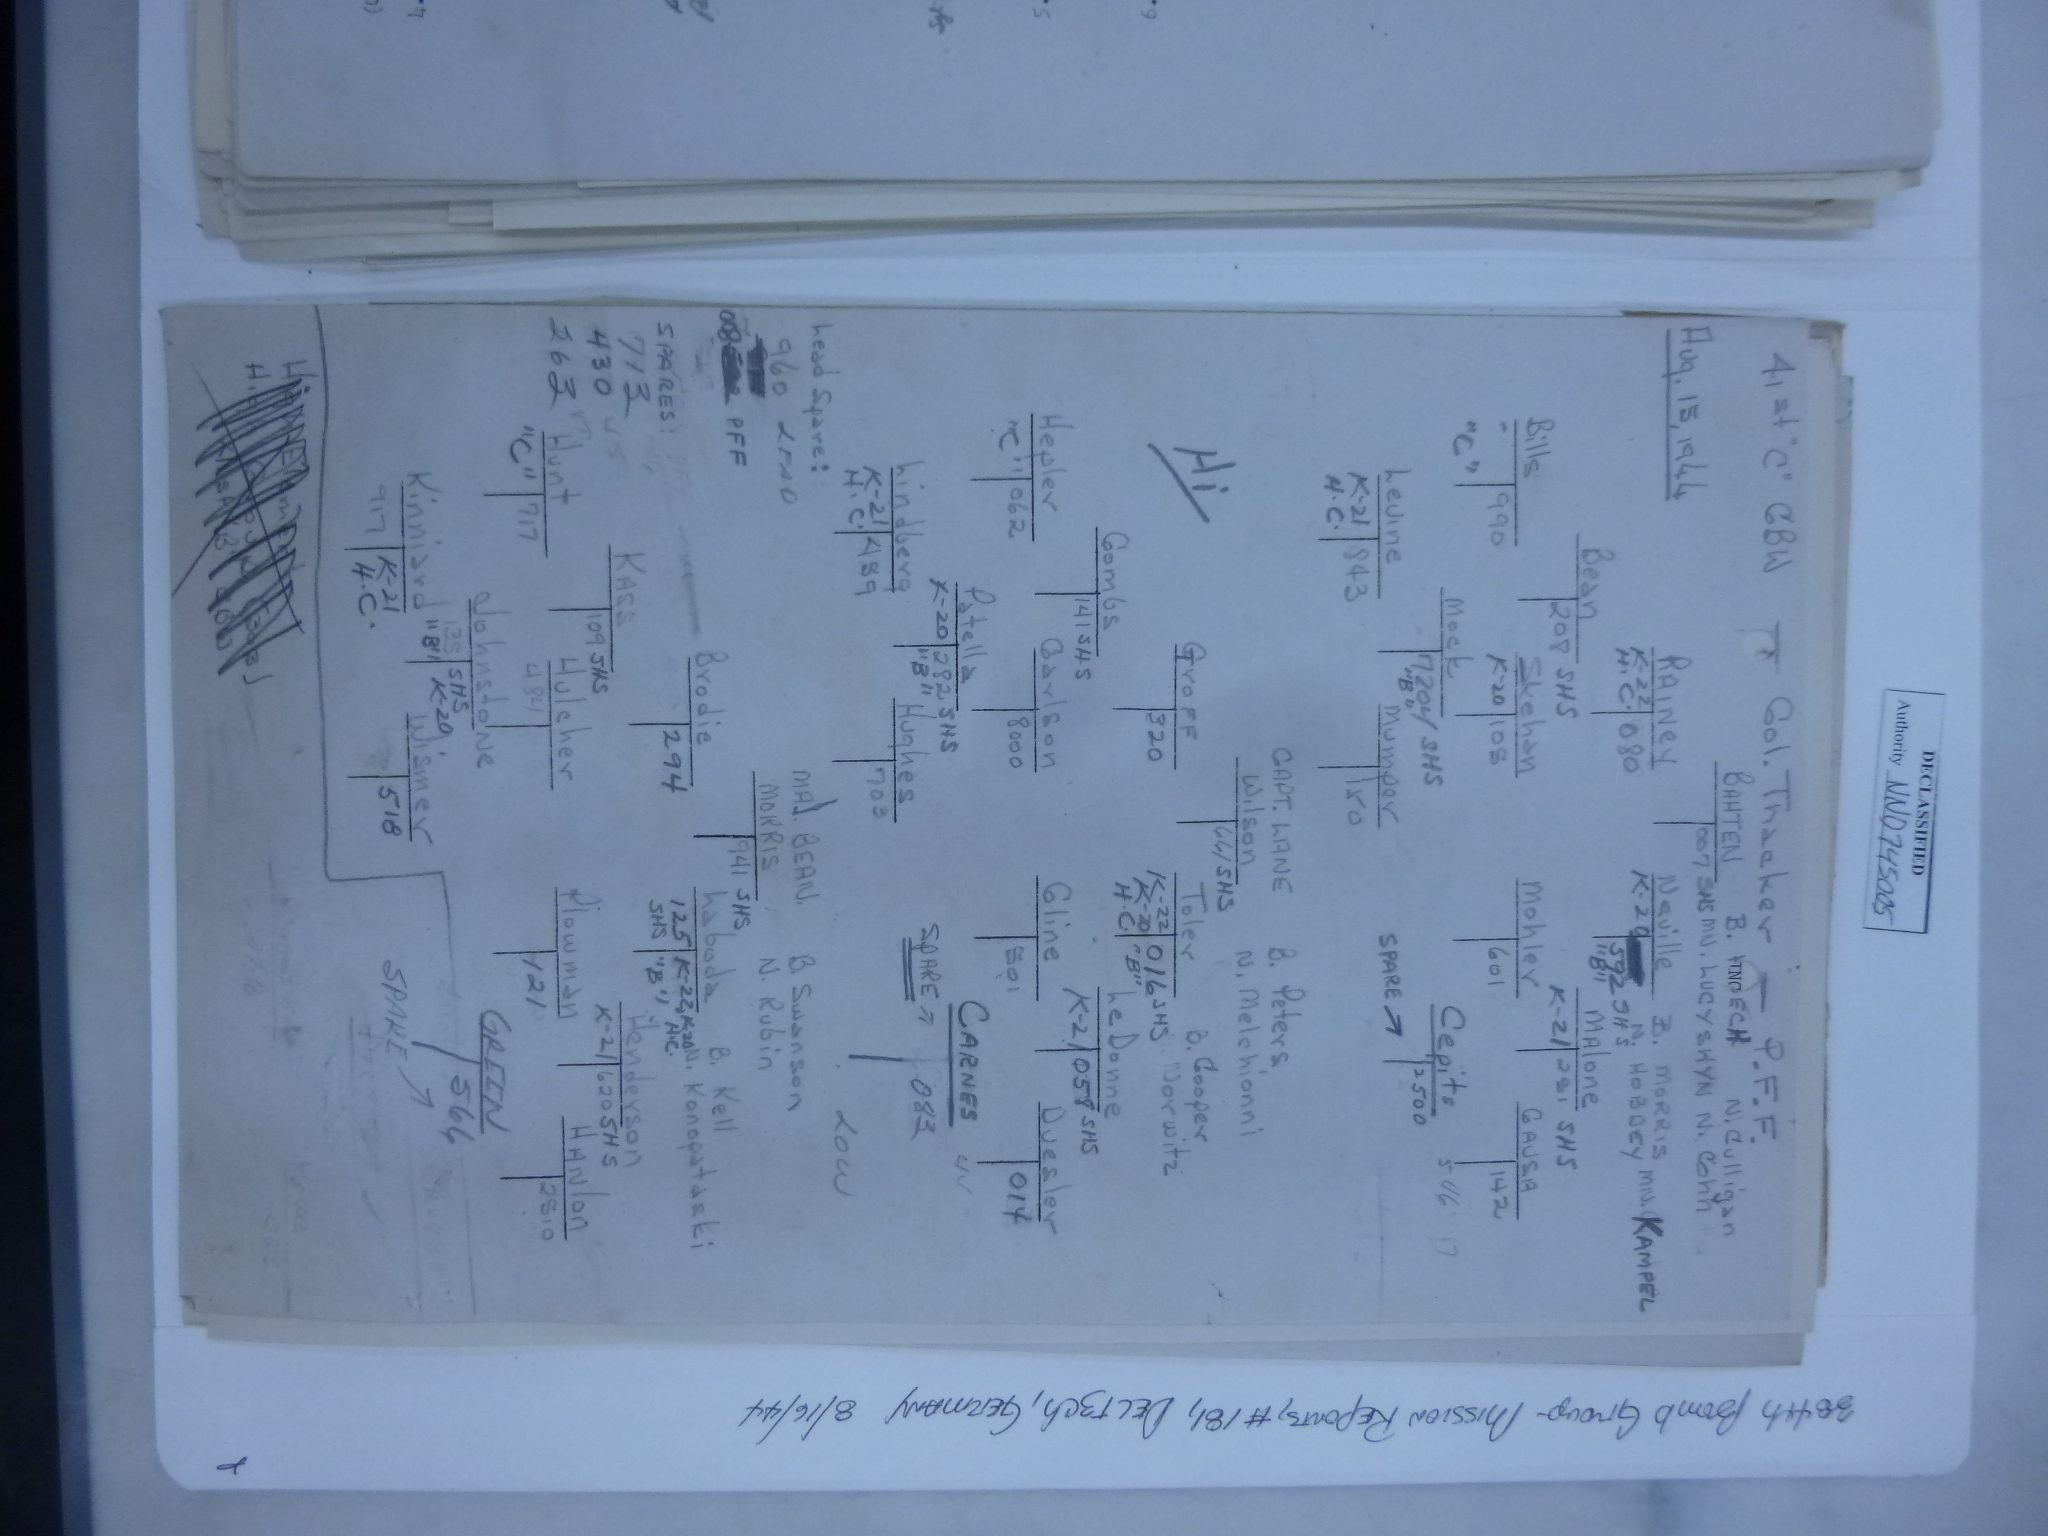 DECLASSIFIED
Authority NND745005
41st "C" CBW Col. Thacker - P.F.F.
Aug. 15, 1944
BAHTEN B. N. Culligan
007 SHS MN. LUCYSHYN N. Cohn
RAINEY Naville B. MORRIS
K-22 080 K-20 592 SHS N. HOBDEY MN. KAMPEL
H.C. "B"
Bean Malone
208 SHS K-21 281 SHS
Bills Skehan Mohler GAUSA
990 K-20 108 601 142
"C"
Mock Cepits
720 SHS SPARE 2500
"B"
Levine Mumper
K-21 843 150
H.C.
CAPT. LANE B. Peters
Wilson N. Melchionni
Hi 441 SHS
Groff Toler B. Cooper
320 K-22 016 SHS Norwitz
K-20 "B"
H.C.
Combs LeDonne
141 SHS K-21 058 SHS
Hepler Carlson Cline Duesler
062 8000 501 017
"C"
Patella CARNES
K-20 282 SHS SPARE 083
"B"
Lindberg Hughes
K-21 489 703
H.C.
Low
lead Spare:
960 LEAD
PFF
SPARES:
713
430
263
MAJ. BEAN. B. Swanson
MORRIS N. Rubin
941 SHS
Brodie Laboda B. Kell
294 125 K-22, K-20 N. Konopataski
SHS "B" H.C.
Kass Henderson
109 SHS K-21 620 SHS
Hunt Hulcher Plowman HANlon
717 484 121 2510
"C"
Johnstone GREEN
135 SHS SPARE 566
"B" K-20
Kinnisrd Wismer
917 K-21 518
H.C.
384th Bomb Group - Mission Reports, #181, DELITZCH, GERMANY 8/16/44